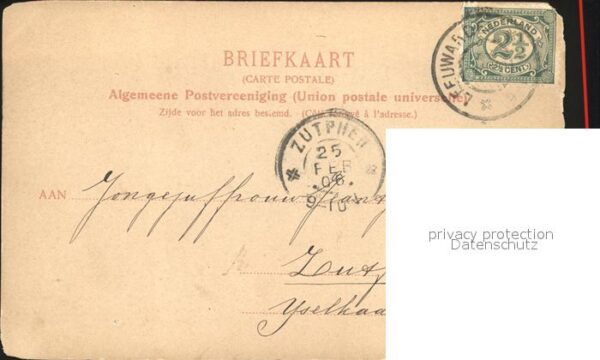 BRIEFKAART
(CARTE POSTALE)
Algemeene Postvereeniging (Union postale universelle)
Zijde voor het adres bestemd. (Côté réservé à l'adresse.)
NEDERLAND
2½
(2½ CENT)
LEEUWAR
ZUTPHEN
25
FEB
08
9-10
AAN
Jongejuffrouw
Zutp
Yselkaa
privacy protection
Datenschutz